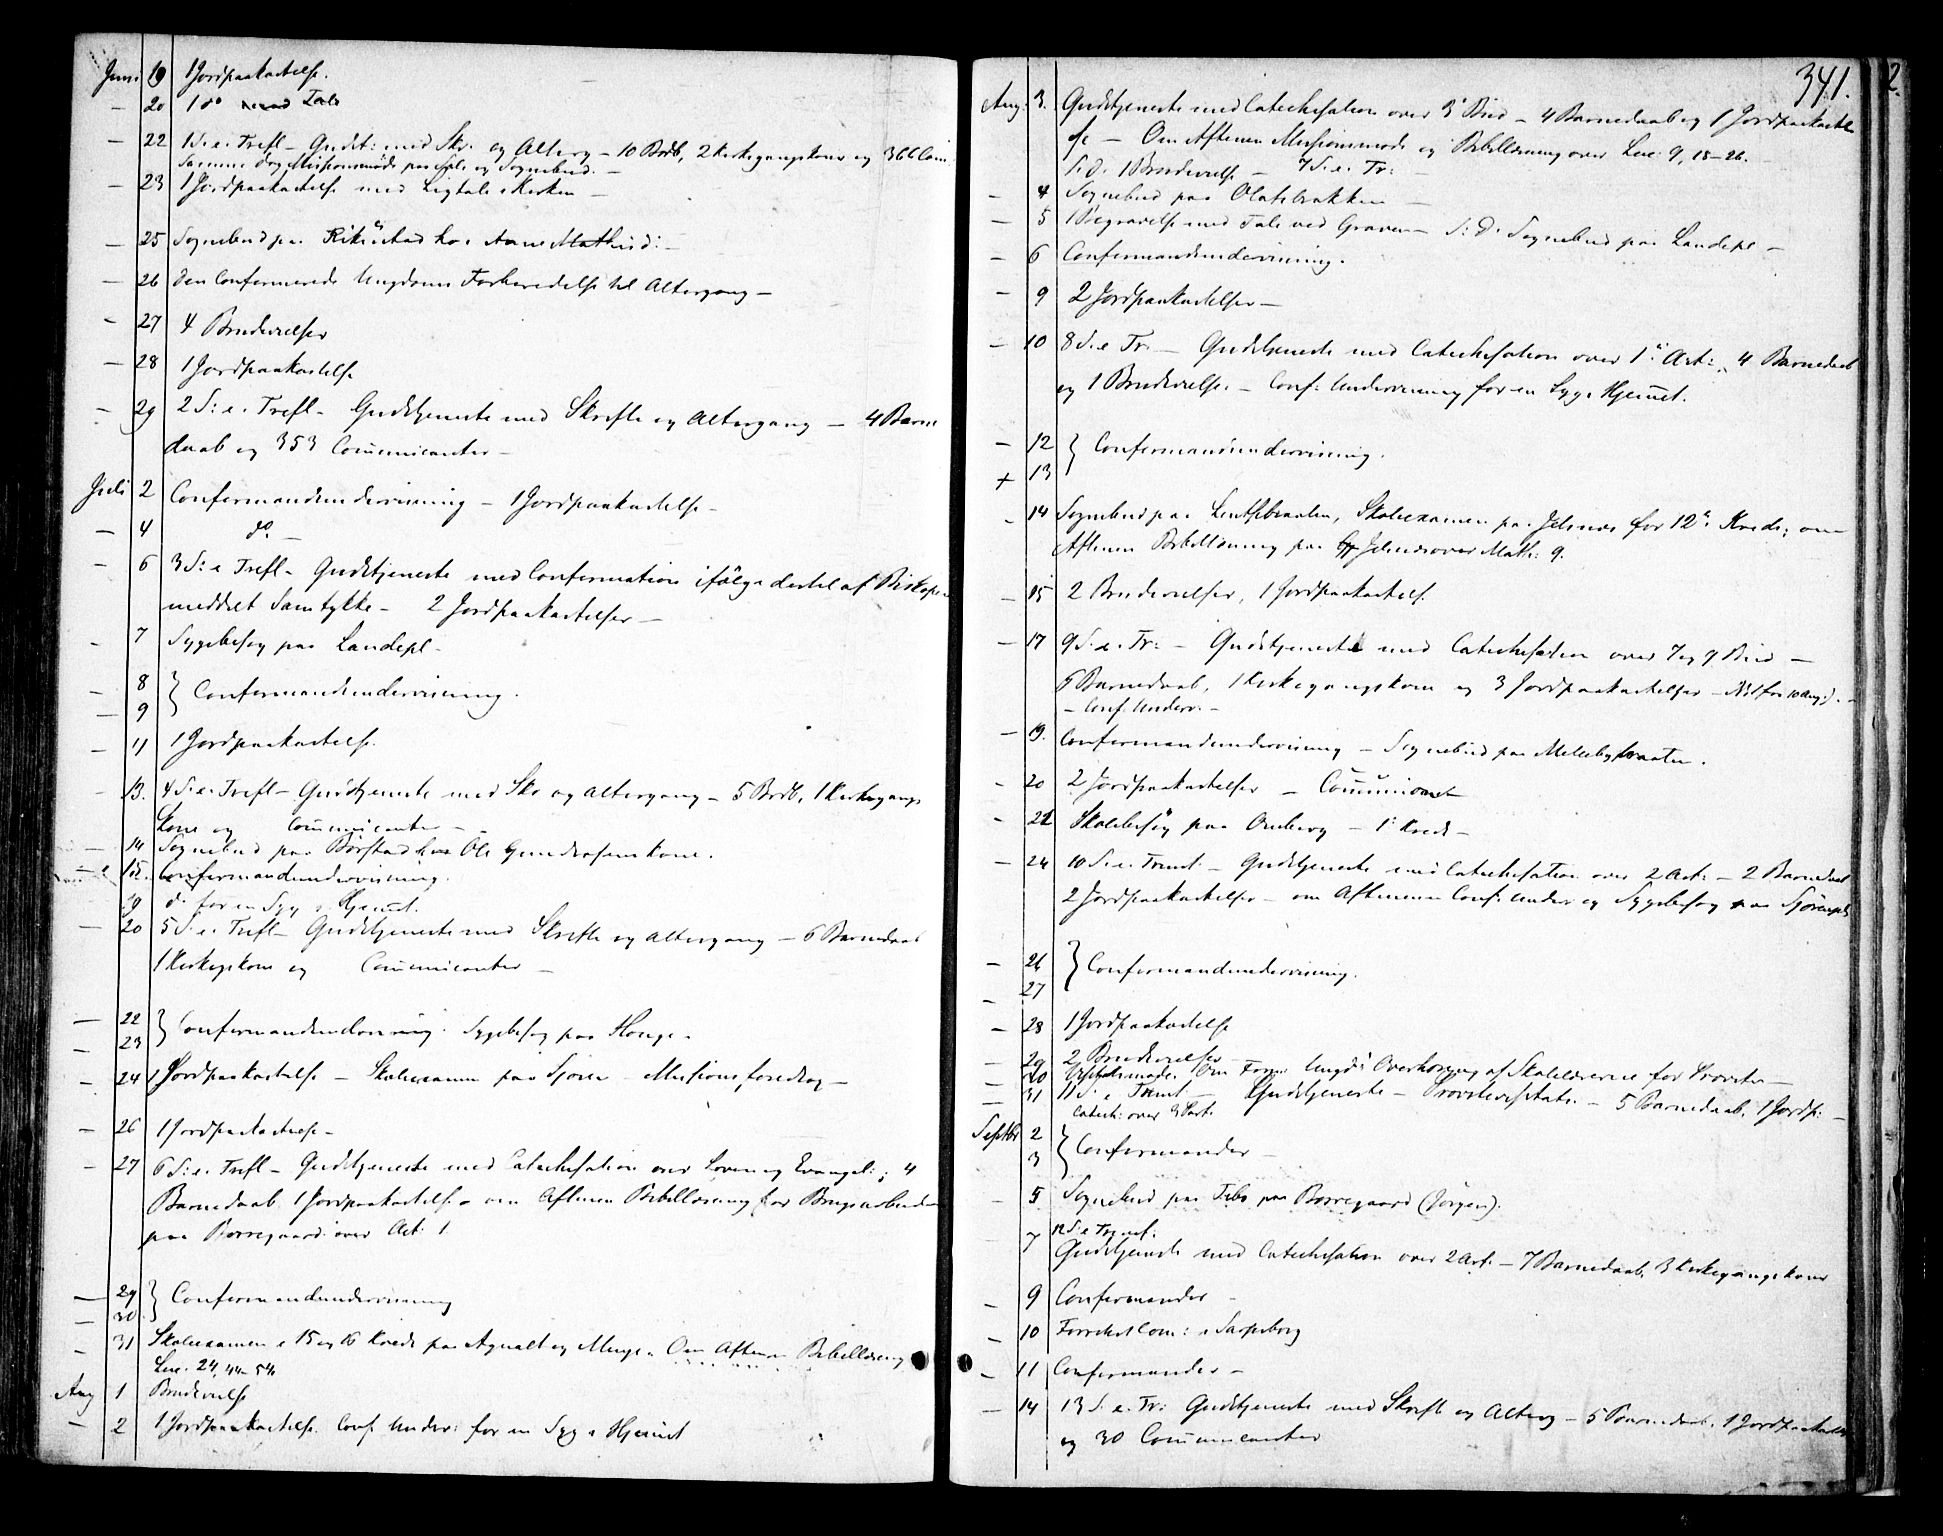 Juni 19 1 Jordpaakastelse.
— 20 1 do Tale
— 22 1 S. e. Trefl — Gudst: med Skr. og Alterg — 10 Brdb, 2 Kirkegangskoner og 366 Com.
Samme Dag Missionsmöde og Sognebud. —
— 23 1 Jordpaakastelse med Ligtale i Kirken —
— 25 Sognebud paa hos Anne Mathisd: —
— 26 den confirmerede Ungdoms Forberedelse til Altergang —
— 27 4 Brudevielser
— 28 1 Jordpaakastelse
— 29 2 S: e. Trefl — Gudstjeneste med Skrifte og Altergang — 4 Barne
daab og 353 Communicanter —
Juli 2 Confirmandundervisning — 1 Jordpaakastelse —
— 4 do —
— 6 3 S: e Trefl — Gudstjeneste med Confirmation ifölge dertil af Biskopen
meddelt Samtykke — 2 Jordpaakastelser —
— 7 Sygebesög paa Landepl —
— 8 } Confirmandundervisning.
— 9
— 11 1 Jordpaakastelse.
— 13. 4 S. e. Trefl — Gudstjeneste med Skr og Altergang — 5 Brdb, 1 Kirkegangs
kone og Communicanter —
— 14 Sognebud paa Börstad hos Ole Gundersens Kone.
— 15. Confirmandundervisning.
19 do for en Syg i Hjemmet.
— 20 5 S. e. Trefl — Gudstjeneste med Skrifte og Altergang — 6 Barnedaab
1 Kirkegskone og Communicanter —
— 22 } Confirmandundervisning. Sygebesög paa Hauge.
— 23
— 24 1 Jordpaakastelse — Skoleexamen paa — Missionsforedrag —
— 26 1 Jordpaakastelse —
— 27 6 S: e. Trefl — Gudstjeneste med Catechisation over Loven og Evangel: ; 4
Barnedaab 1 Jordpaakastelse — om Aftenen Bibellæsning for
paa Borregaard over Act. 1.
— 29 } Confirmandundervisning
— 30
— 31 Skoleexamen i 15 og 16 Kreds paa Agnalt og Menge. Om Aftenen Bibellæsning
Luc. 24, 44-54.
Aug 1 Brudevielse
— 2 1 Jordpaakastelse. Conf. Under: for en Syg i Hjemmet
341.
Aug. 3. Gudstjeneste med Catechisation over 3 Bud — 4 Barnedaab og 1 Jordpaakastel
se — Om Aftenen Missionsmöde og Bibellæsning over Luc. 9, 18-26. —
S. D. 1 Brudevielse — 7 S. e. Tr: —
— 4 Sognebud paa Olatsbakken —
— 5 1 Begravelse med Tale ved Graven — S: D. Sognebud paa Landepl —
— 6 Confirmandundervisning.
— 9 2 Jordpaakastelser —
— 10 8 S. e Tr. — Gudstjeneste med Catechisation over 1 Art:, 4 Barnedaab
og 1 Brudevielse. — Conf: Undervisning for en Syg i Hjemmet.
— 12 } Confirmandundervisning.
+ 13
— 14 Sognebud paa Skoleexamen paa Jelsnes for 12 Kreds; om
Aftenen Bibellæsning paa Jelsnes over Math: 9.
— 15 2 Brudevielser, 1 Jordpaakastelse.
— 17 9 S. e. Tr: — Gudstjeneste med Catechisation over 7 og 9 Bud —
6 Barnedaab, 1 Kirkegangskone og 3 Jordpaakastelser —
— Conf. Underv. —
— 19. Confirmandundervisning — Sognebud paa Mellebybraaten.
— 20 2 Jordpaakastelser — Communion
— 21 Skolebesög paa Omberg — 1 Kreds —
— 24 10 S. e. Trinit. — Gudstjeneste med Catechisation over 2 Art: — 2 Barnedaab
2 Jordpaakastelser — om Aftenen Conf. Under og Sygebesög paa
— 26 } Confirmandundervisning.
— 27
— 28 1 Jordpaakastelse
— 29 2 Brudevielser —
— 30 Overhöring af Skolelærerne for Provsten —
— 31 11 S. e Trinit — Gudstjeneste — Provstevisitats — 5 Barnedaab. 1 Jordp: —
Catech: over 3 Art.
Septbr 2 } Confirmander —
3
— 5 Sognebud paa Borregaard (Jörgen).
— 7 12 S. e Trinit.
Gudstjeneste med Catechisation over 2 Art. — 7 Barnedaab, 3 Kirkegangskoner
— 9 Confirmander —
— 10 Forretn Com: i Sarpsborg
— 11 Confirmander —
— 14 13 S. e. Tr: Gudstjeneste med Skrifte og Alterg — 5 Barnedaab, 1 Jordpaakast
og 30 Communicanter